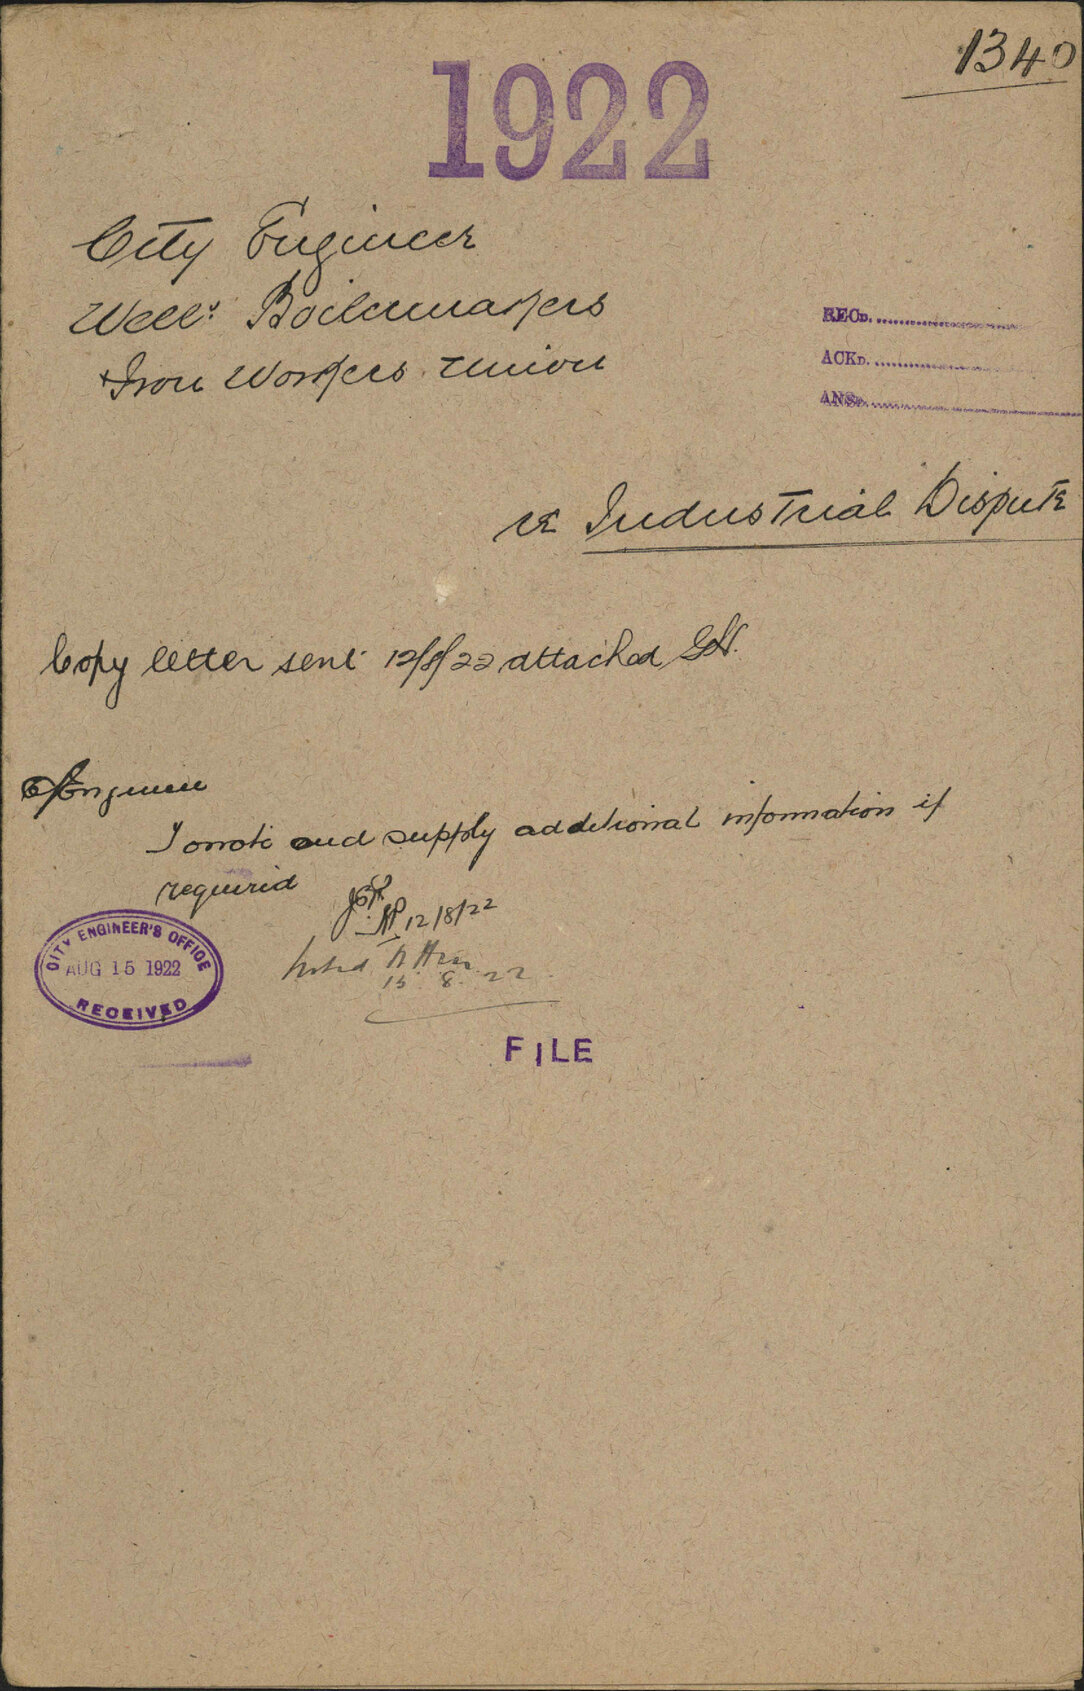 1340
1922
City Engineer
Well: Boilermakers
& Iron Workers Union
RECD.
ACKD.
ANSD.
re Industrial Dispute
Copy letter sent 12/8/22 attached
C/Engineer
To note and supply additional information if
required
12/8/22
Noted
15 8 22
CITY ENGINEER'S OFFICE
AUG 15 1922
RECEIVED
FILE